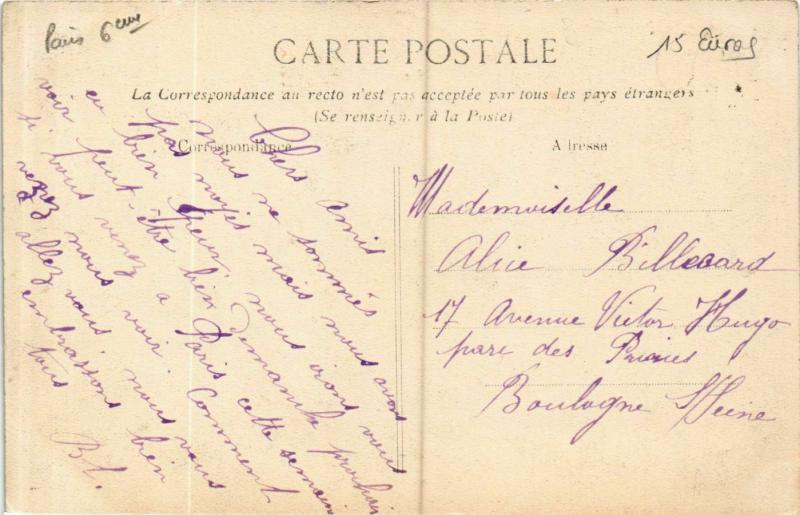 Paris 6eme
15 Euros
CARTE POSTALE
La Correspondance au recto n'est pas acceptée par tous les pays étrangers
(Se renseigner à la Poste)
Correspondance
Adresse
Chers amis
nous ne sommes
pas noyés mais nous avons
eu bien peur, nous irons vous
voir peut-être bien dimanche prochain
si vous venez a Paris cette semaine
venez nous voir. Comment
allez vous nous vous
embrassons bien
tous
Bl.
Mademoiselle
Alice Billecard
17 Avenue Victor Hugo
parc des Princes
Boulogne S/Seine